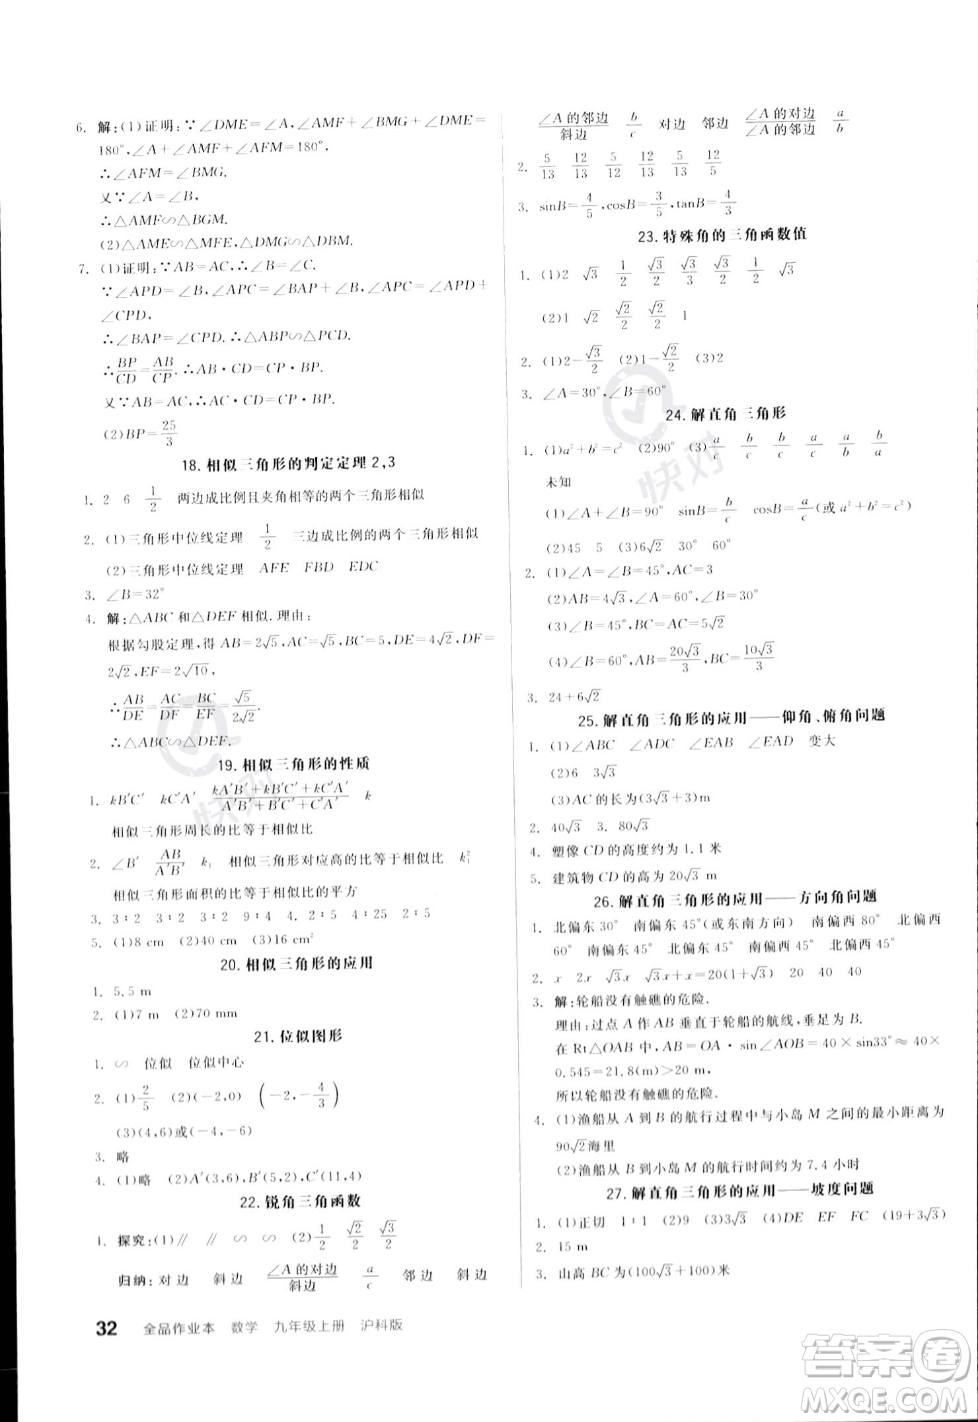 6. 解:(1)证明:∵∠DME=∠A,∠AMF+∠BMG+∠DME=
180°,∠A+∠AFM+∠AMF=180°,
∴∠AFM=∠BMG.
又∵∠A=∠B,
∴△AMF∽△BGM.
(2)△AME∽△MFE,△AME∽△DMG.
7. (1)证明:∵AB=AC,∴∠B=∠C.
∵∠APD=∠B,∠APC=∠BAP+∠B=∠APD+
∠CPD,
∴∠BAP=∠CPD.∴△ABP∽△PCD.
∴BP/CD=AB/CP.∴AB·CD=CP·BP.
又∵AB=AC,∴AC·CD=CP·BP.
(2)BP=25/3
18.相似三角形的判定定理2,3
1. 2 6 1/2 两边成比例且夹角相等的两个三角形相似
2. (1)三角形中位线定理 1/2 三边成比例的两个三角形相似
(2)三角形中位线定理 AFE FBD EDC
3. ∠B=32°
4. 解:△ABC和△DEF相似.理由:
根据勾股定理,得AB=2√5,AC=√5,BC=5,DE=4√2,DF=
2√2,EF=2√10,
∴AB/DE=AC/DF=BC/EF=√5/2√2.
∴△ABC∽△DEF.
19.相似三角形的性质
1. kB′C′ kA′C′ (kA′B′+kB′C′+kA′C′)/(A′B′+B′C′+A′C′) k
相似三角形周长的比等于相似比
2. ∠B′ AB/A′B′ k₁ 相似三角形对应高的比等于相似比 k₁²
相似三角形面积的比等于相似比的平方
3. 3∶2 3∶2 9∶4 4. 3∶2
5. (1)8 cm (2)40 cm (3)cm²
20.相似三角形的应用
1. 5.5 m
2. (1)7 m (2)70 mm
21.位似图形
1. ∽ 位似 位似中心
2. (1)2/5 (2)(-2,0) (-2,-4/3)
(3)(4,6)或(-4,-6)
3. 略
4. (1)略 (2)A′(3,6),B′(5,2),C′(11,4)
22.锐角三角函数
1. 探究:(1)∥ ∥ ∽ (2)1/2 √2/2 √3/2
归纳:对边 斜边 ∠A的对边/斜边 a/c 邻边 斜边
32 全品作业本 数学 九年级上册 沪科版
∠A的邻边/斜边 b/c 对边 邻边 ∠A的对边/∠A的邻边 a/b
2. 5/13 12/13 12/13 5/13 5/12
3. sinB=4/5,cosB=3/5,tanB=4/3
23.特殊角的三角函数值
1. (1)2 √3 1/2 √3/2 √3/3 √3/2 1/2 √3
(2)1 √2 √2/2 √2/2 1
2. (1)2-√3/2 (2)1-√2/2 (3)2
3. ∠A=30°,∠B=60°
24.解直角三角形
1. (1)a²+b²=c² (2)90° (3)a/c b/c b/c a/c a/b b/a
未知
(1)∠A+∠B=90° sinB=b/c cosB=a/c(或a²+b²=c²)
(2)45 5 (3)6√2 √3/2 60
2. (1)∠A=∠B=45°,AC=3
(2)AB=4√3,∠A=30°,∠B=60°
(3)∠B=30°,AC=5,BC=5√3
(4)∠B=60°,AB=20√3/3,BC=10√3/3
3. 24+6√2
25.解直角三角形的应用——仰角、俯角问题
1. (1)∠ABC ∠ADC ∠EAB ∠EAD 变大
(2)6 3√3
(3)AC的长为(3√3+3)m
2. 40√3 3. 80√3
4. 塑像CD的高度约为1.1米
5. 建筑物CD的高为20√3 m
26.解直角三角形的应用——方向角问题
1. 北偏东30° 南偏东45°(或东南方向) 南偏西80° 北偏西
60° 南偏东45° 北偏西45° 南偏西45°
2. x 2x √3x √3x=20(1+√3) 20 20 40
3. 解:轮船没有触礁的危险.
理由:过点O作OB垂直于轮船的航线,垂足为B.
在Rt△OAB中,AB=OA·sin∠AOB=40×sin33°≈40×
0.545=21.8(m)>20 m,
所以轮船没有触礁的危险.
4. (1)渔船从A到B的航行过程中与小岛M之间的最小距离为
90√2海里
(2)渔船从B到小岛M的航行时间约为7.4小时
27.解直角三角形的应用——坡度问题
1. (1)正切 1∶1 (2)9 (3)3√3 (4)DE EF FC (19+3√3)
2. 15 m
3. 山高BC为(100√3+100)m
快对
快对
答案卷
MXQE.COM